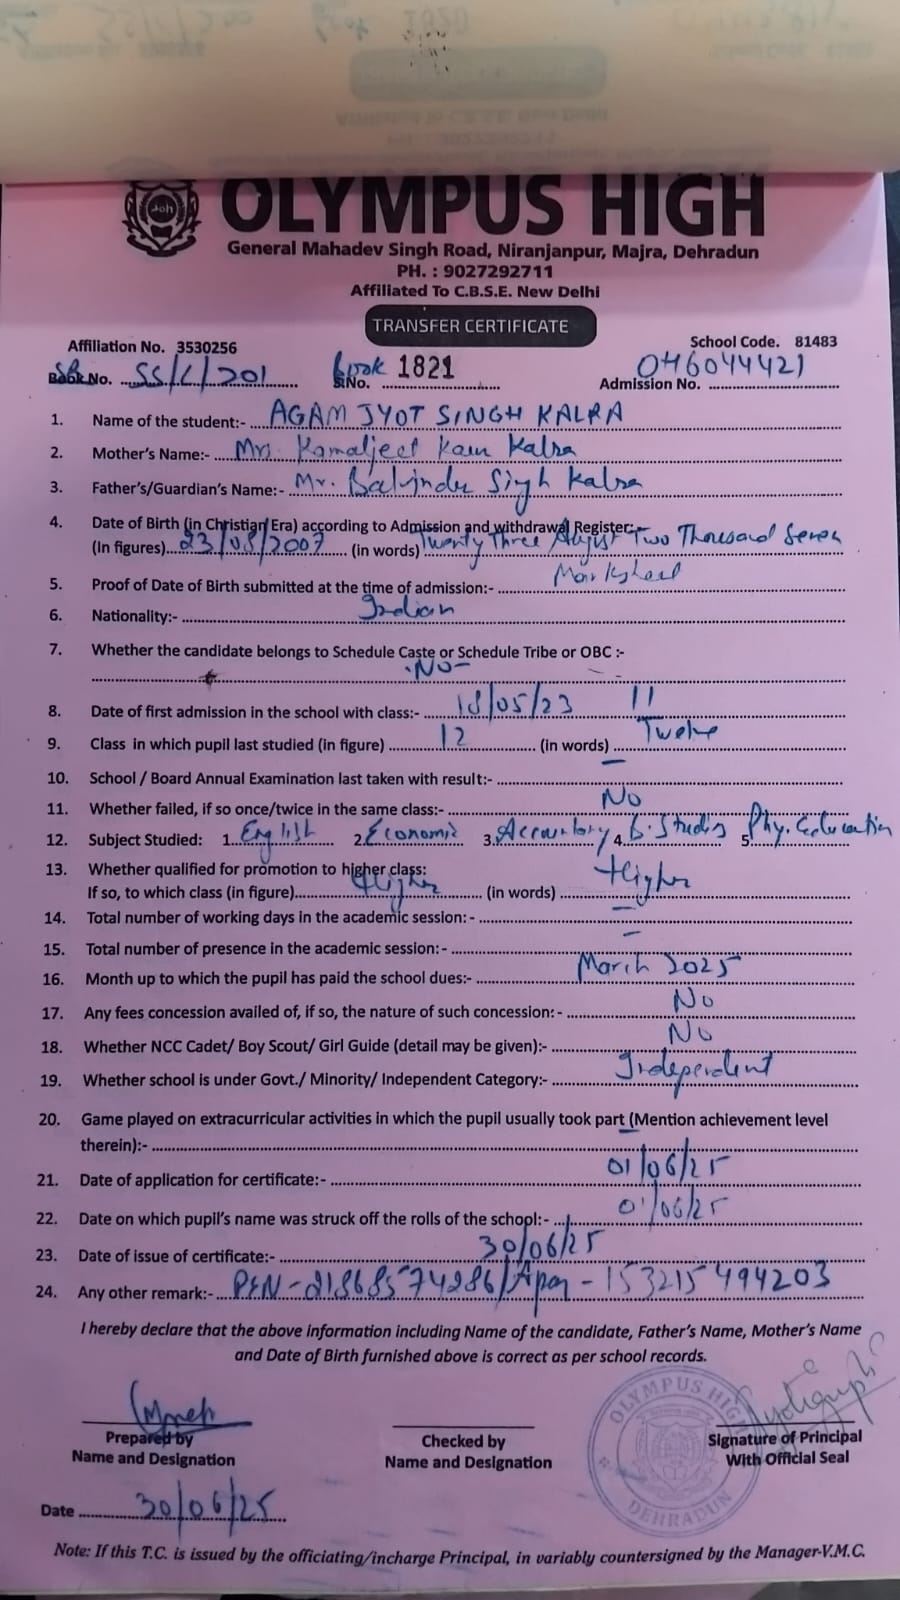 OLYMPUS HIGH
General Mahadev Singh Road, Niranjanpur, Majra, Dehradun
PH. : 9027292711
Affiliated To C.B.S.E. New Delhi
TRANSFER CERTIFICATE
Affiliation No. 3530256 School Code. 81483
SR Book No. SS/C/201 Book S.No. 1821 Admission No. 046044421
1. Name of the student:- AGAM JYOT SINGH KALRA
2. Mother's Name:- Mrs. Kamaljeet Kaur Kalra
3. Father's/Guardian's Name:- Mr. Balvinder Singh Kalra
4. Date of Birth (in Christian Era) according to Admission and withdrawal Register:-
(In figures) 23/08/2007 (in words) Twenty Three August Two Thousand Seven
5. Proof of Date of Birth submitted at the time of admission:- Marksheet
6. Nationality:- Indian
7. Whether the candidate belongs to Schedule Caste or Schedule Tribe or OBC :-
-No-
8. Date of first admission in the school with class:- 18/05/23 11
9. Class in which pupil last studied (in figure) 12 (in words) Twelve
10. School / Board Annual Examination last taken with result:- –
11. Whether failed, if so once/twice in the same class:- No
12. Subject Studied: 1. English 2. Economic 3. Accountary 4. B. Studies 5. Phy. Education
13. Whether qualified for promotion to higher class:
If so, to which class (in figure) Higher (in words) Higher
14. Total number of working days in the academic session: - –
15. Total number of presence in the academic session:- –
16. Month up to which the pupil has paid the school dues:- March 2025
17. Any fees concession availed of, if so, the nature of such concession: - No
18. Whether NCC Cadet/ Boy Scout/ Girl Guide (detail may be given):- No
19. Whether school is under Govt./ Minority/ Independent Category:- Independent
20. Game played on extracurricular activities in which the pupil usually took part (Mention achievement level
therein):-
21. Date of application for certificate:- 01/06/25
22. Date on which pupil's name was struck off the rolls of the school:- 01/06/25
23. Date of issue of certificate:- 30/06/25
24. Any other remark:- PEN-21868574286/Apar-153215494203
I hereby declare that the above information including Name of the candidate, Father's Name, Mother's Name
and Date of Birth furnished above is correct as per school records.
OLYMPUS HIGH
DEHRADUN
Prepared by Checked by Signature of Principal
Name and Designation Name and Designation With Official Seal
Date 30/06/25
Note: If this T.C. is issued by the officiating/incharge Principal, in variably countersigned by the Manager-V.M.C.